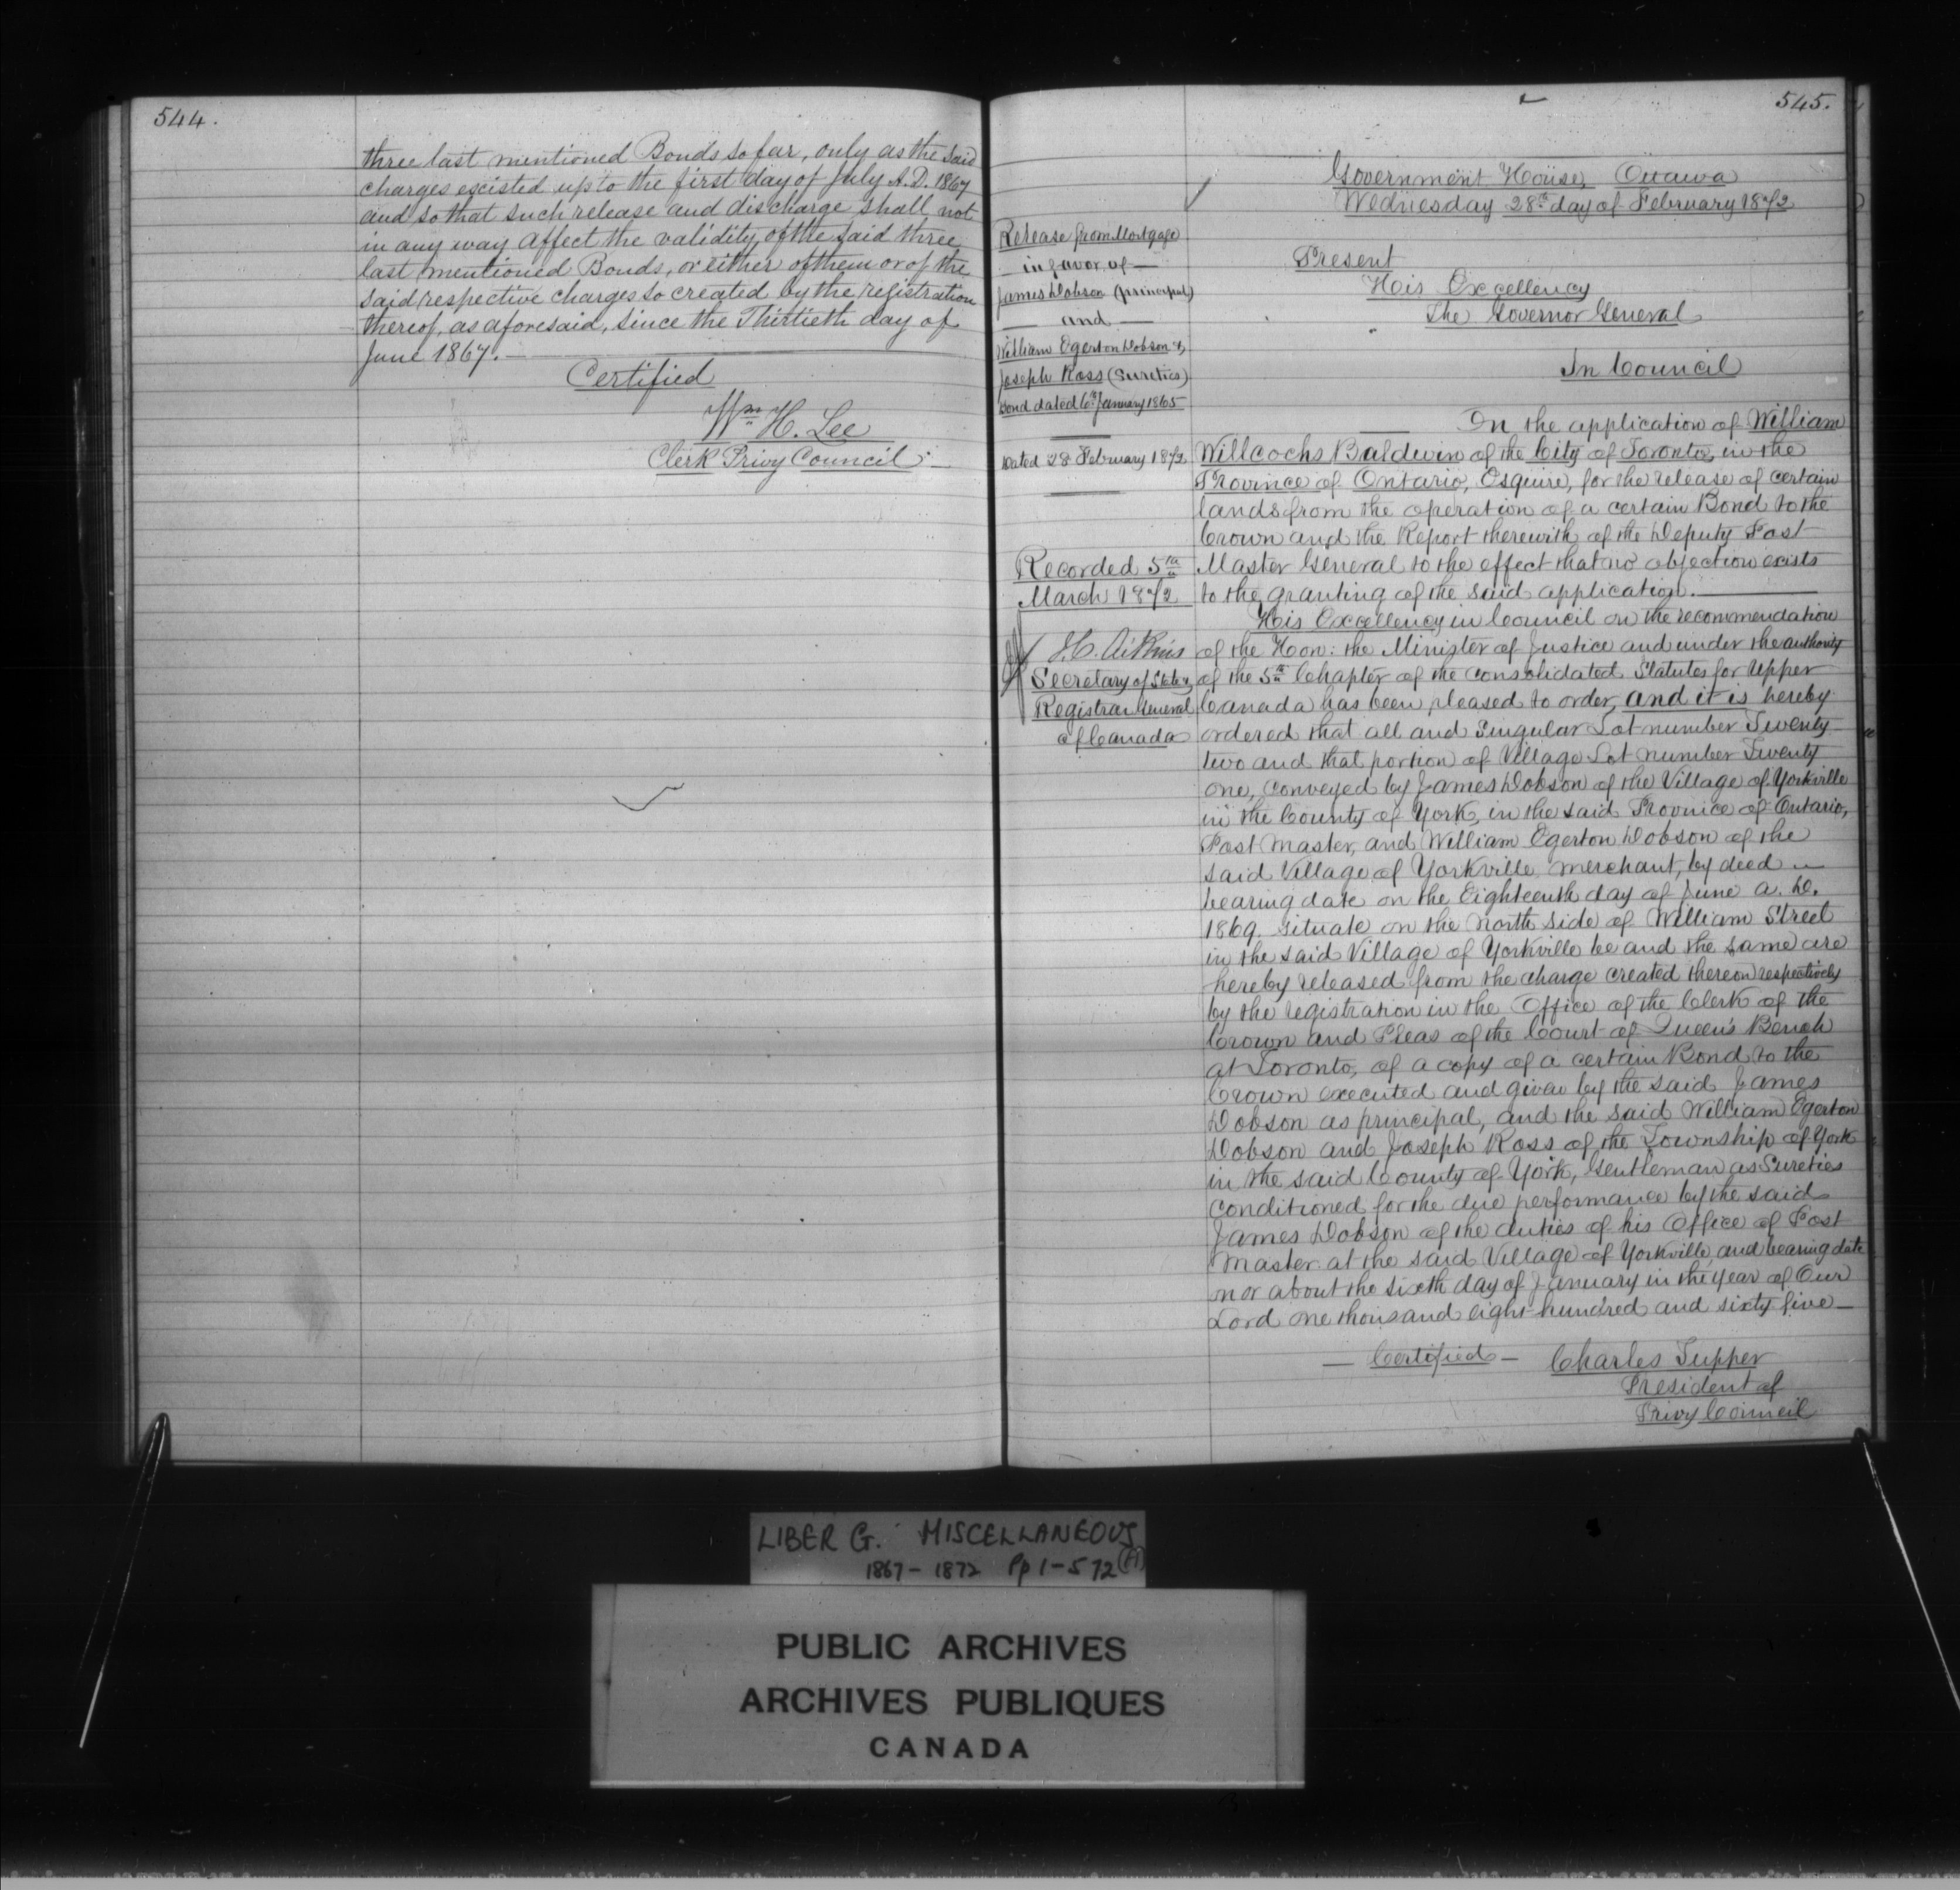 544.
three last mentioned Bonds so far, only as the said
charges existed up to the first day of July A.D. 1867
and so that such release and discharge shall not
in any way affect the validity of the said three
last mentioned Bonds, or either of them or of the
said respective charges so created by the registration
thereof, as aforesaid, since the Thirtieth day of
June 1867.—
Certified
Wm H. Lee
Clerk Privy Council
545.
Government House, Ottawa
Wednesday 28th day of February 1872
Present
His Excellency
The Governor General
In Council
Release from Mortgage
in favor of —
James Dobson (principal)
— and —
William Egerton Dobson &
Joseph Ross (Sureties)
Bond dated 6th January 1865
Dated 28 February 1872
Recorded 5th
March 1872
J.C. Aikins
Secretary of State &
Registrar General
of Canada
— On the application of William
Willcocks Baldwin of the City of Toronto, in the
Province of Ontario, Esquire, for the release of certain
lands from the operation of a certain Bond to the
Crown and the Report therewith of the Deputy Post
Master General to the effect that no objection exists
to the granting of the said application.
His Excellency in Council on the recommendation
of the Hon: the Minister of Justice and under the authority
of the 5th Chapter of the Consolidated Statutes for Upper
Canada has been pleased to order, and it is hereby
ordered that all and Singular Lot number Twenty
two and that portion of Village Lot number Twenty
one, conveyed by James Dobson of the Village of Yorkville
in the County of York, in the said Province of Ontario,
Post Master, and William Egerton Dobson of the
said Village of Yorkville, merchant, by deed
bearing date on the Eighteenth day of June A. D.
1869. situate on the North side of William Street
in the said Village of Yorkville be and the same are
hereby released from the charge created thereon respectively
by the registration in the Office of the Clerk of the
Crown and Pleas of the Court of Queen's Bench
at Toronto, of a copy of a certain Bond to the
Crown executed and given by the said James
Dobson as principal, and the said William Egerton
Dobson and Joseph Ross of the Township of York
in the said County of York, Gentleman as Sureties
conditioned for the due performance by the said
James Dobson of the duties of his Office of Post
Master at the said Village of Yorkville, and bearing date
on or about the sixth day of January in the year of Our
Lord one thousand eight hundred and sixty five —
— Certified — Charles Tupper
President of
Privy Council
LIBER G. MISCELLANEOUS
1867 - 1872 Pp 1-572
PUBLIC ARCHIVES
ARCHIVES PUBLIQUES
CANADA